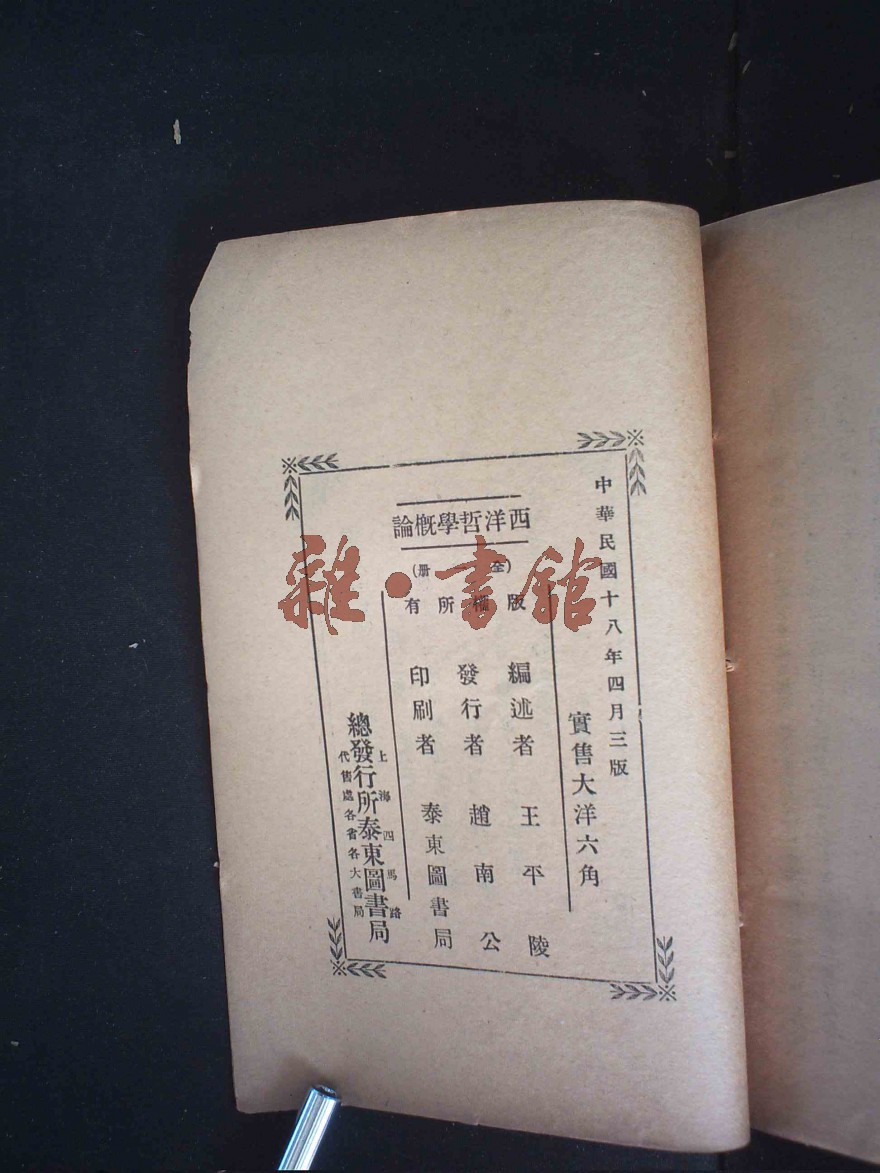 中華民國十八年四月三版
實售大洋六角
西洋哲學概論
(全 册)
版權所有
編述者 王平陵
發行者 趙南公
印刷者 泰東圖書局
上海四馬路
總發行所泰東圖書局
代售處各省各大書局
雜·書館